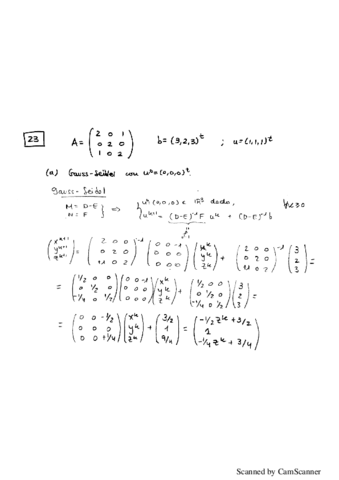 23 A = (2 0 1 / 0 2 0 / 1 0 2) b = (3,2,3)^t ; u = (1,1,1)^t
(a) Gauss-Seidel con u⁰ = (0,0,0)^t.
Gauss-Seidel
M = D-E
N = F
⇒ { u⁰(0,0,0) ∈ ℝ³ dado,
u^{k+1} = (D-E)^{-1}F u^k + (D-E)^{-1} b
∀k≥0
(x^{k+1} / y^{k+1} / z^{k+1}) = (2 0 0 / 0 2 0 / 1 0 2)^{-1} (0 0 -1 / 0 0 0 / 0 0 0) (x^k / y^k / z^k) + (2 0 0 / 0 2 0 / 1 0 2)^{-1} (3 / 2 / 3) =
= (1/2 0 0 / 0 1/2 0 / -1/4 0 1/2) (0 0 -1 / 0 0 0 / 0 0 0) (x^k / y^k / z^k) + (1/2 0 0 / 0 1/2 0 / -1/4 0 1/2) (3 / 2 / 3) =
= (0 0 -1/2 / 0 0 0 / 0 0 +1/4) (x^k / y^k / z^k) + (3/2 / 1 / 9/4) = (-1/2 z^k + 3/2 / 1 / -1/4 z^k + 3/4)
Scanned by CamScanner